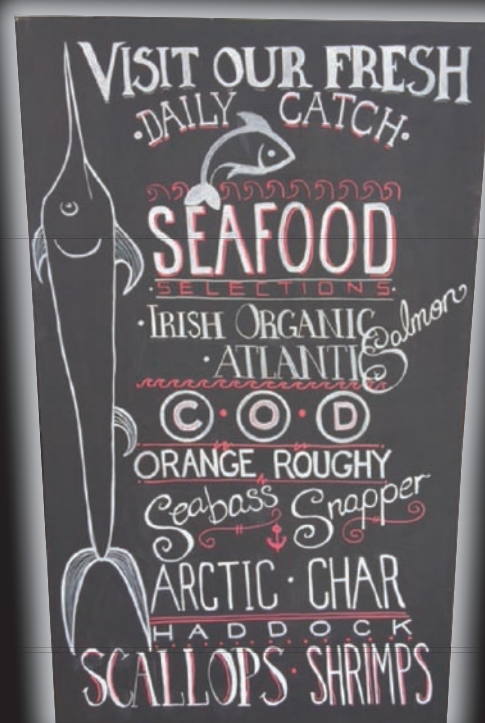 VISIT OUR FRESH
·DAILY CATCH·
SEAFOOD
·SELECTIONS·
·IRISH ORGANIC
·ATLANTIC Salmon
C·O·D
ORANGE ROUGHY
Seabass Snapper
ARCTIC · CHAR
HADDOCK
SCALLOPS·SHRIMPS